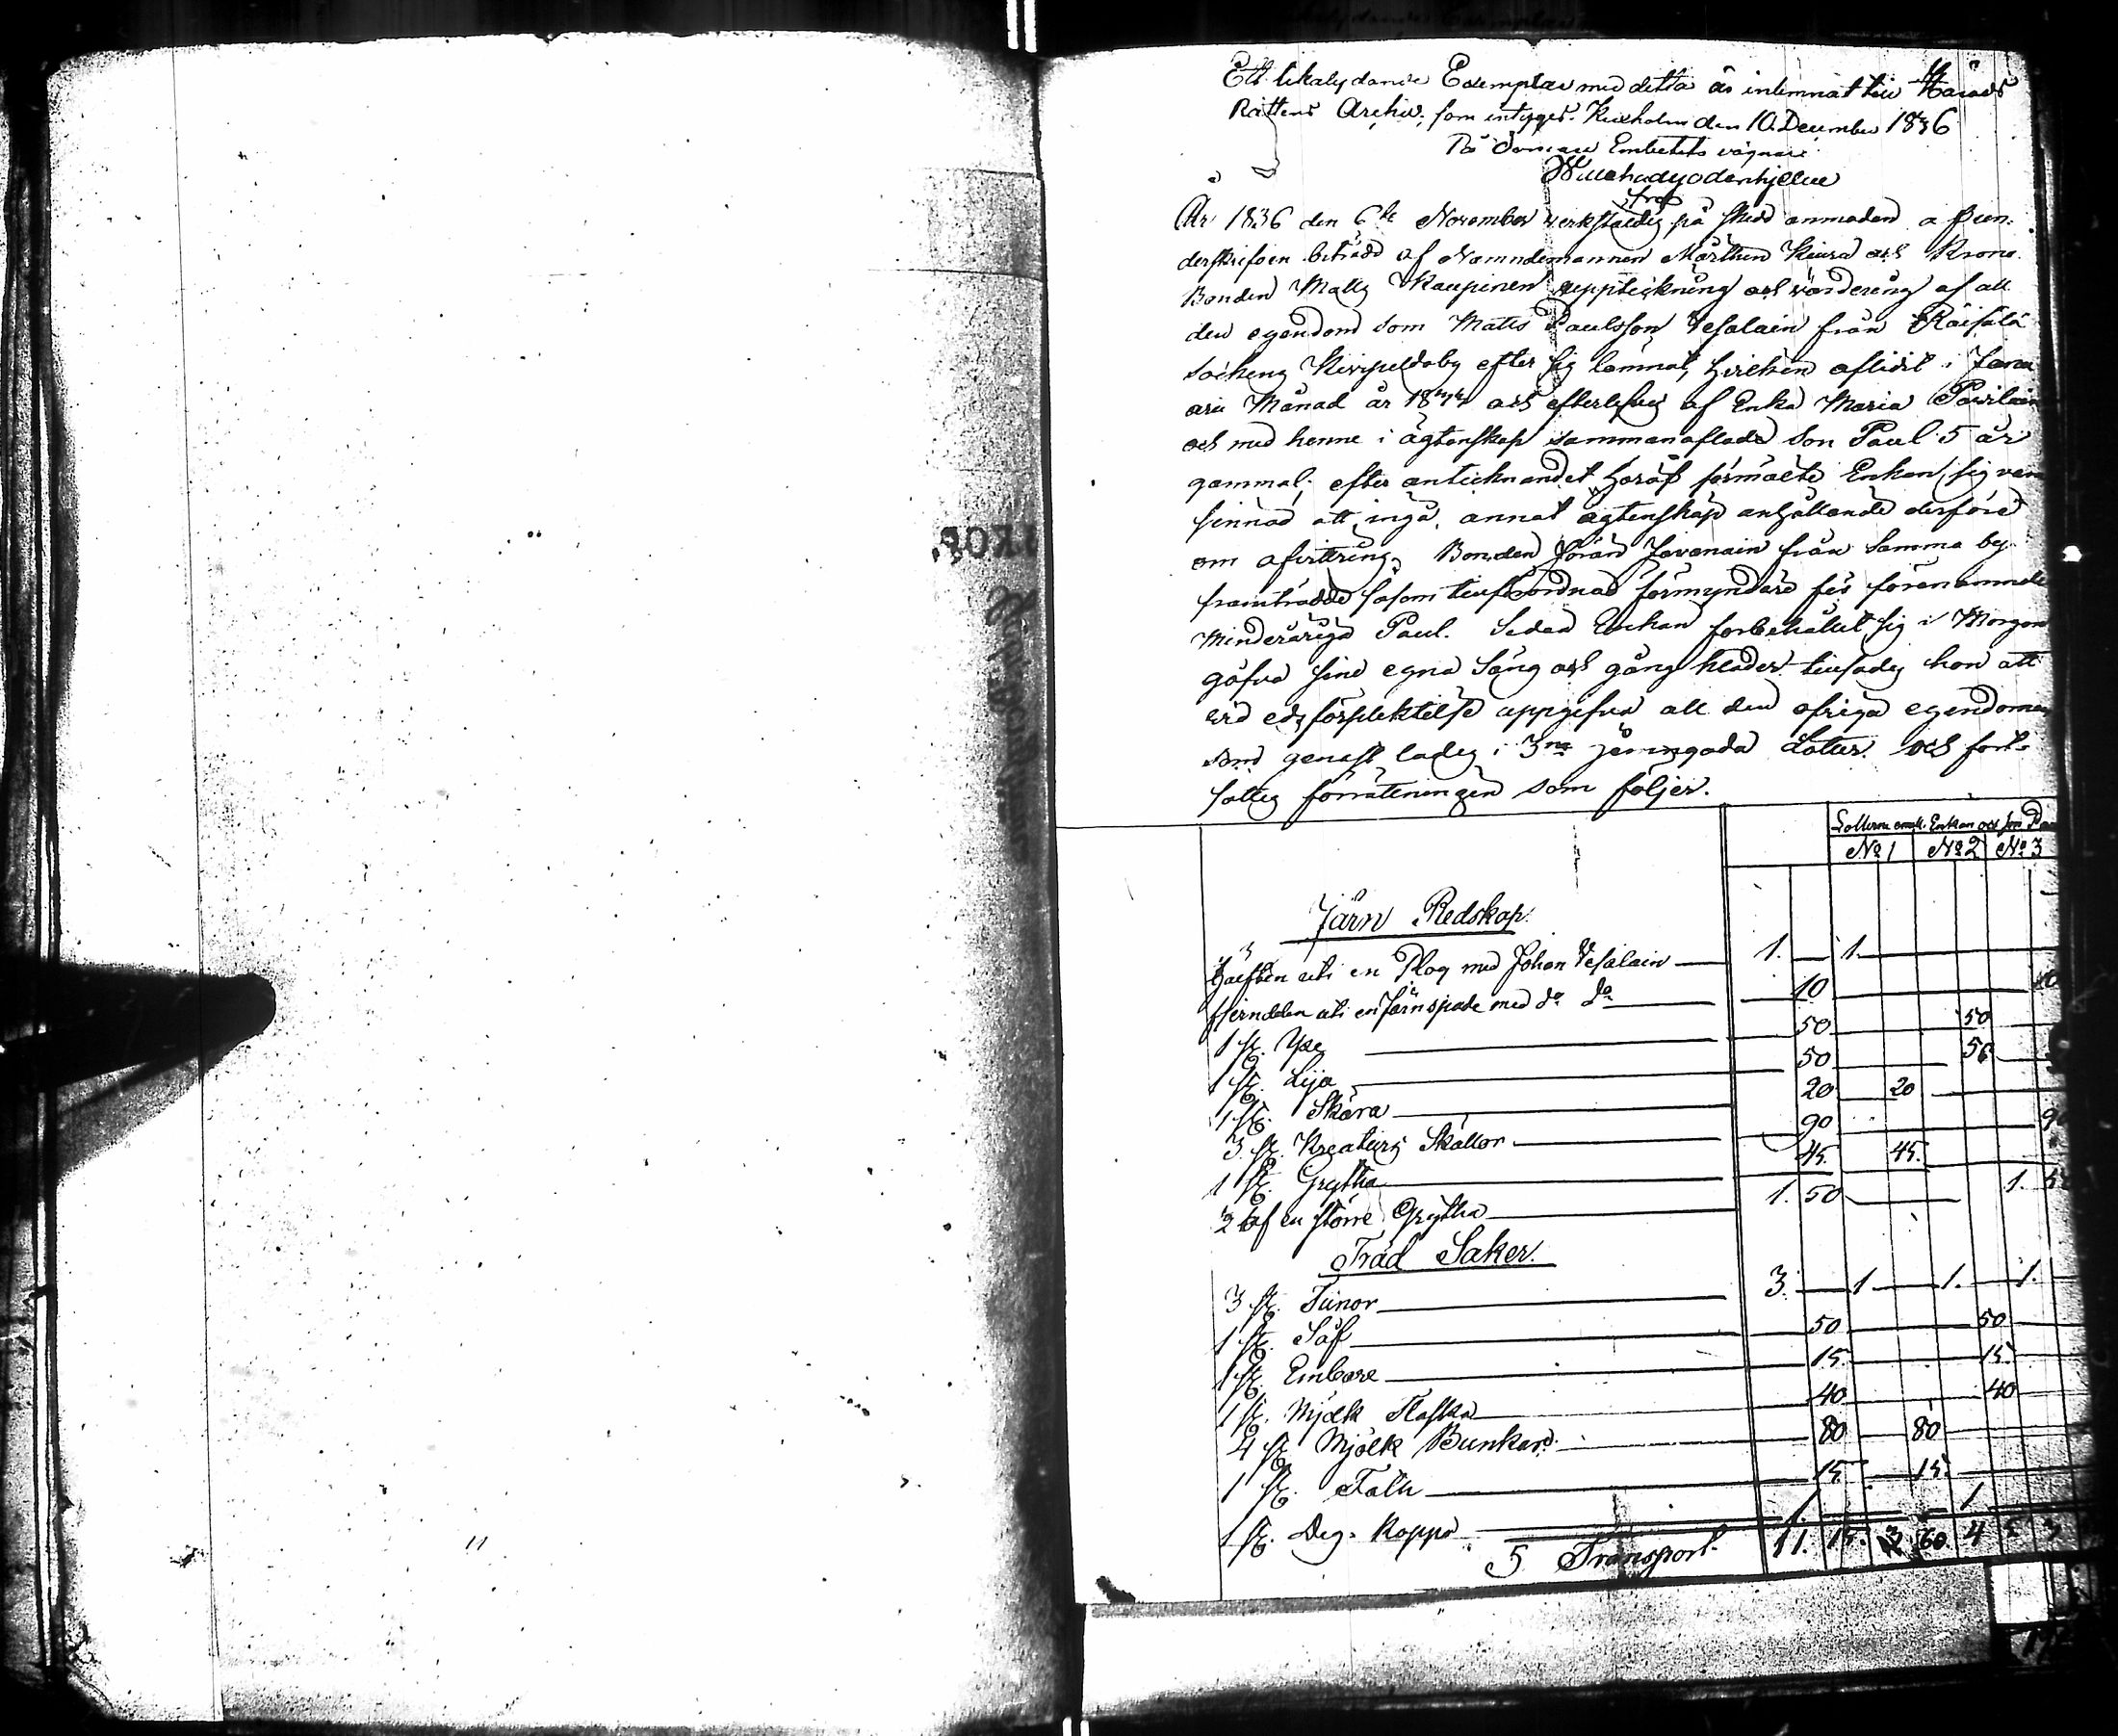 Ett likalydande Exemplar med detta är inlemnat till Härads
Rättens Archiv, som intygas. Kexholm den 10 December 1836
På Domare Embetets vägnar
År 1836 den 6te November verkstäldes på skedd anmodan af un-
derskrifven biträdd af Nämndemannen Mårthen Kiura och Krono
Bonden Matts Kaupinen uppteckning och värdering af all
den egendom som Matts Paulsson Vesalain från Räisälä
Sockens by efter sig lämnat, hvilken aflidit i Janu
arii Månad år och efterlefves af Enka Maria
och med henne i ägtenskap sammanaflade Son Paul 5 år
gammal; efter antecknandet häraf förmälte Enkan sig vara
sinnad att ingå annat ägtenskap anhållande derföre
om afvittring. Bonden Jöran Javanain från samma by
framträdde såsom tillförordnad förmyndare för förenämnde
Minderåriga Paul. Sedan Enkan förbehållit sig i Morgon
gåfva sine egna Säng och gång kläder tillsades hon att
vid eds förpliktelse uppgifva all den öfriga egendomen
som genast lades i 3ne jemngoda Lotter och fort-
sattes förrättningen som följer.
Lotterne emell. Enkan och son
No 1 No 2 No 3
Järn Redskap.
Hälften uti en Plog med Johan Vesalain 1. 1.
fjerndelen uti en Järnspade med do do 10 10
1 st. Yxe 50 50
1 st. Lija 50 50
1 st. Skära 20 20
3 st. Kreaturs Skällor 90 90
1 st. Grytha 45. 45.
2 af en större Grytha 1. 50 1. 50
Träd Saker.
3 st. Tunor 3. 1 1. 1.
1 st. Såf 50 50
1 st. Embare 15. 15.
1 st. Mjölk Flaska 40 40
4 st. Mjölk Bunkar 80 80
1 st. Fath 15. 15.
1 st. Deg Koppa 1 1
Transport. 11. 15. 60 4 3